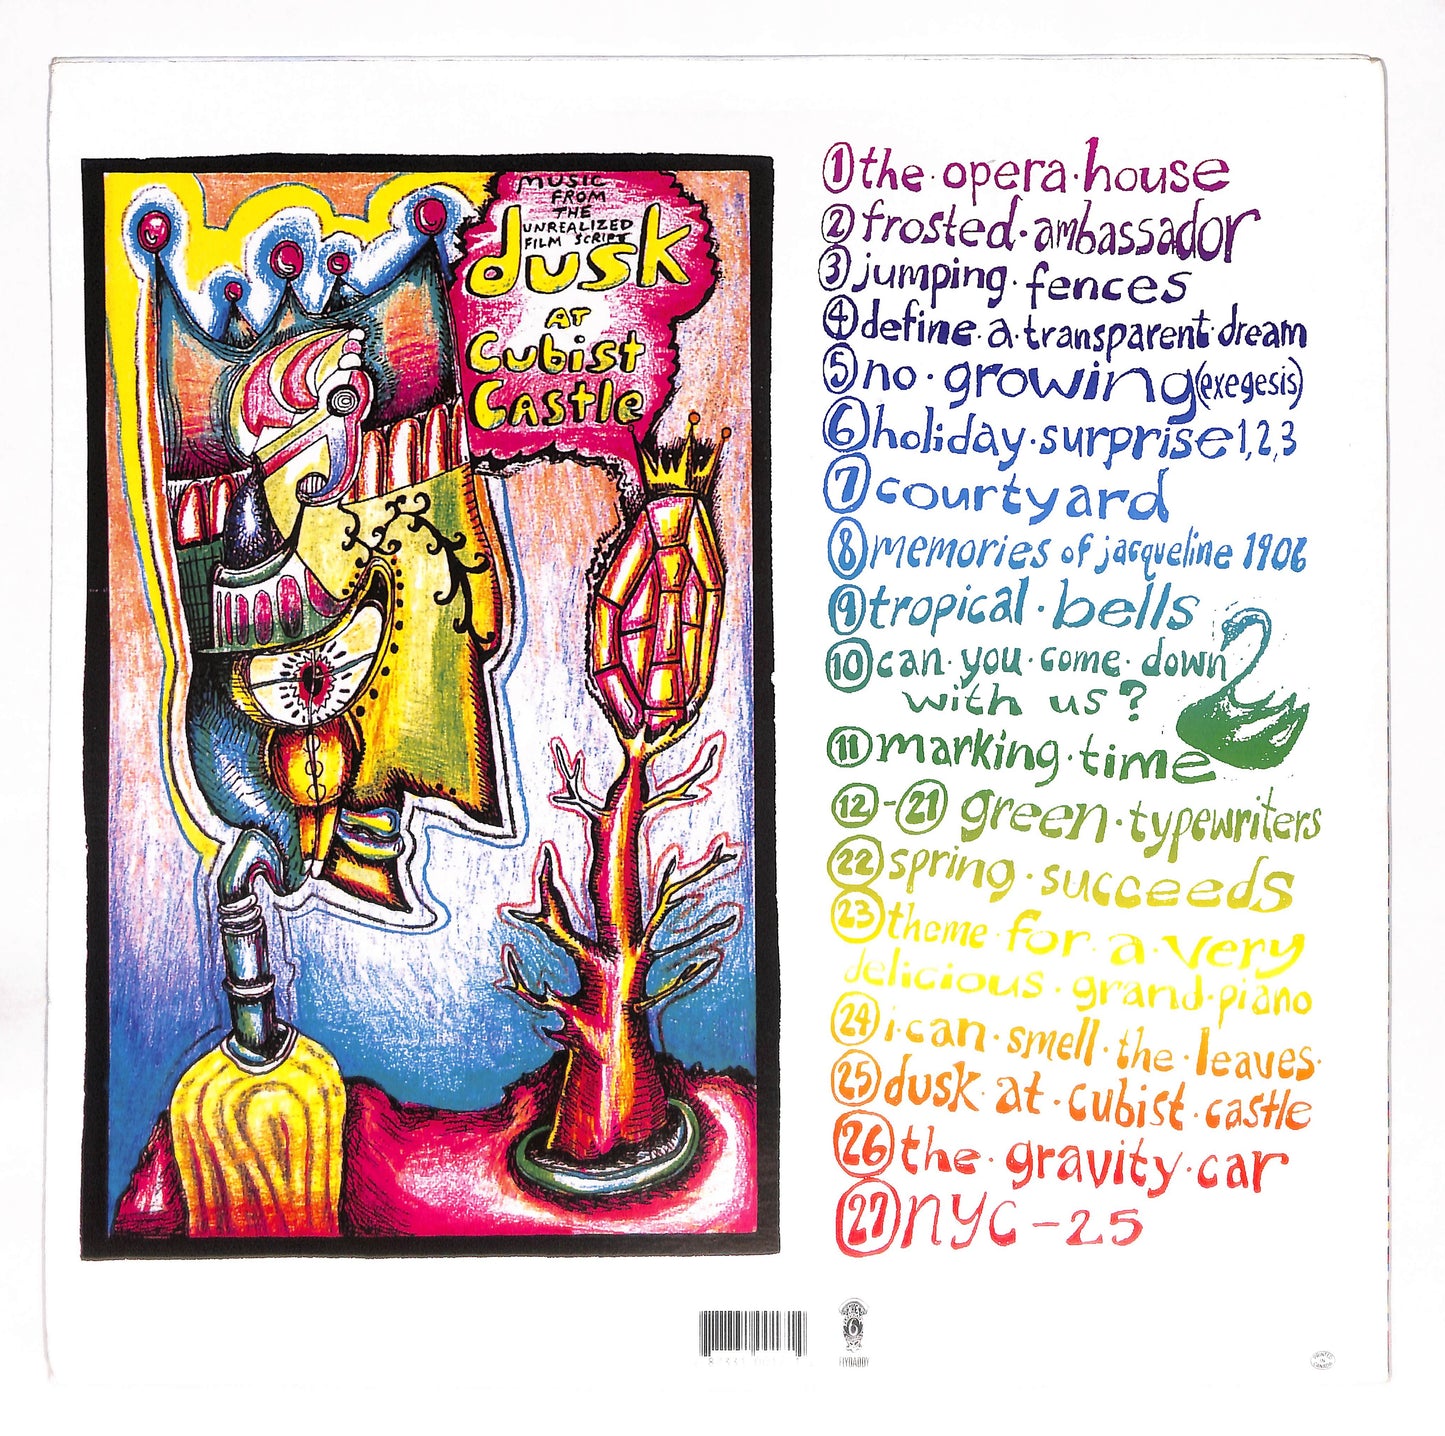 MUSIC
FROM
THE
UNREALIZED
FILM SCRIPT
dusk
AT
Cubist
Castle
1 the·opera·house
2 frosted·ambassador
3 jumping·fences
4 define·a·transparent·dream
5 no·growing(exegesis)
6 holiday·surprise 1,2,3
7 courtyard
8 memories of jacqueline 1906
9 tropical·bells
10 can·you·come·down
with us?
11 marking·time
12-21 green·typewriters
22 spring·succeeds
23 theme·for·a·very
delicious·grand·piano
24 i·can·smell·the·leaves·
25 dusk·at·cubist·castle
26 the·gravity·car
27 NYC-25
6
FLYDADDY
PRINTED
IN
CANADA